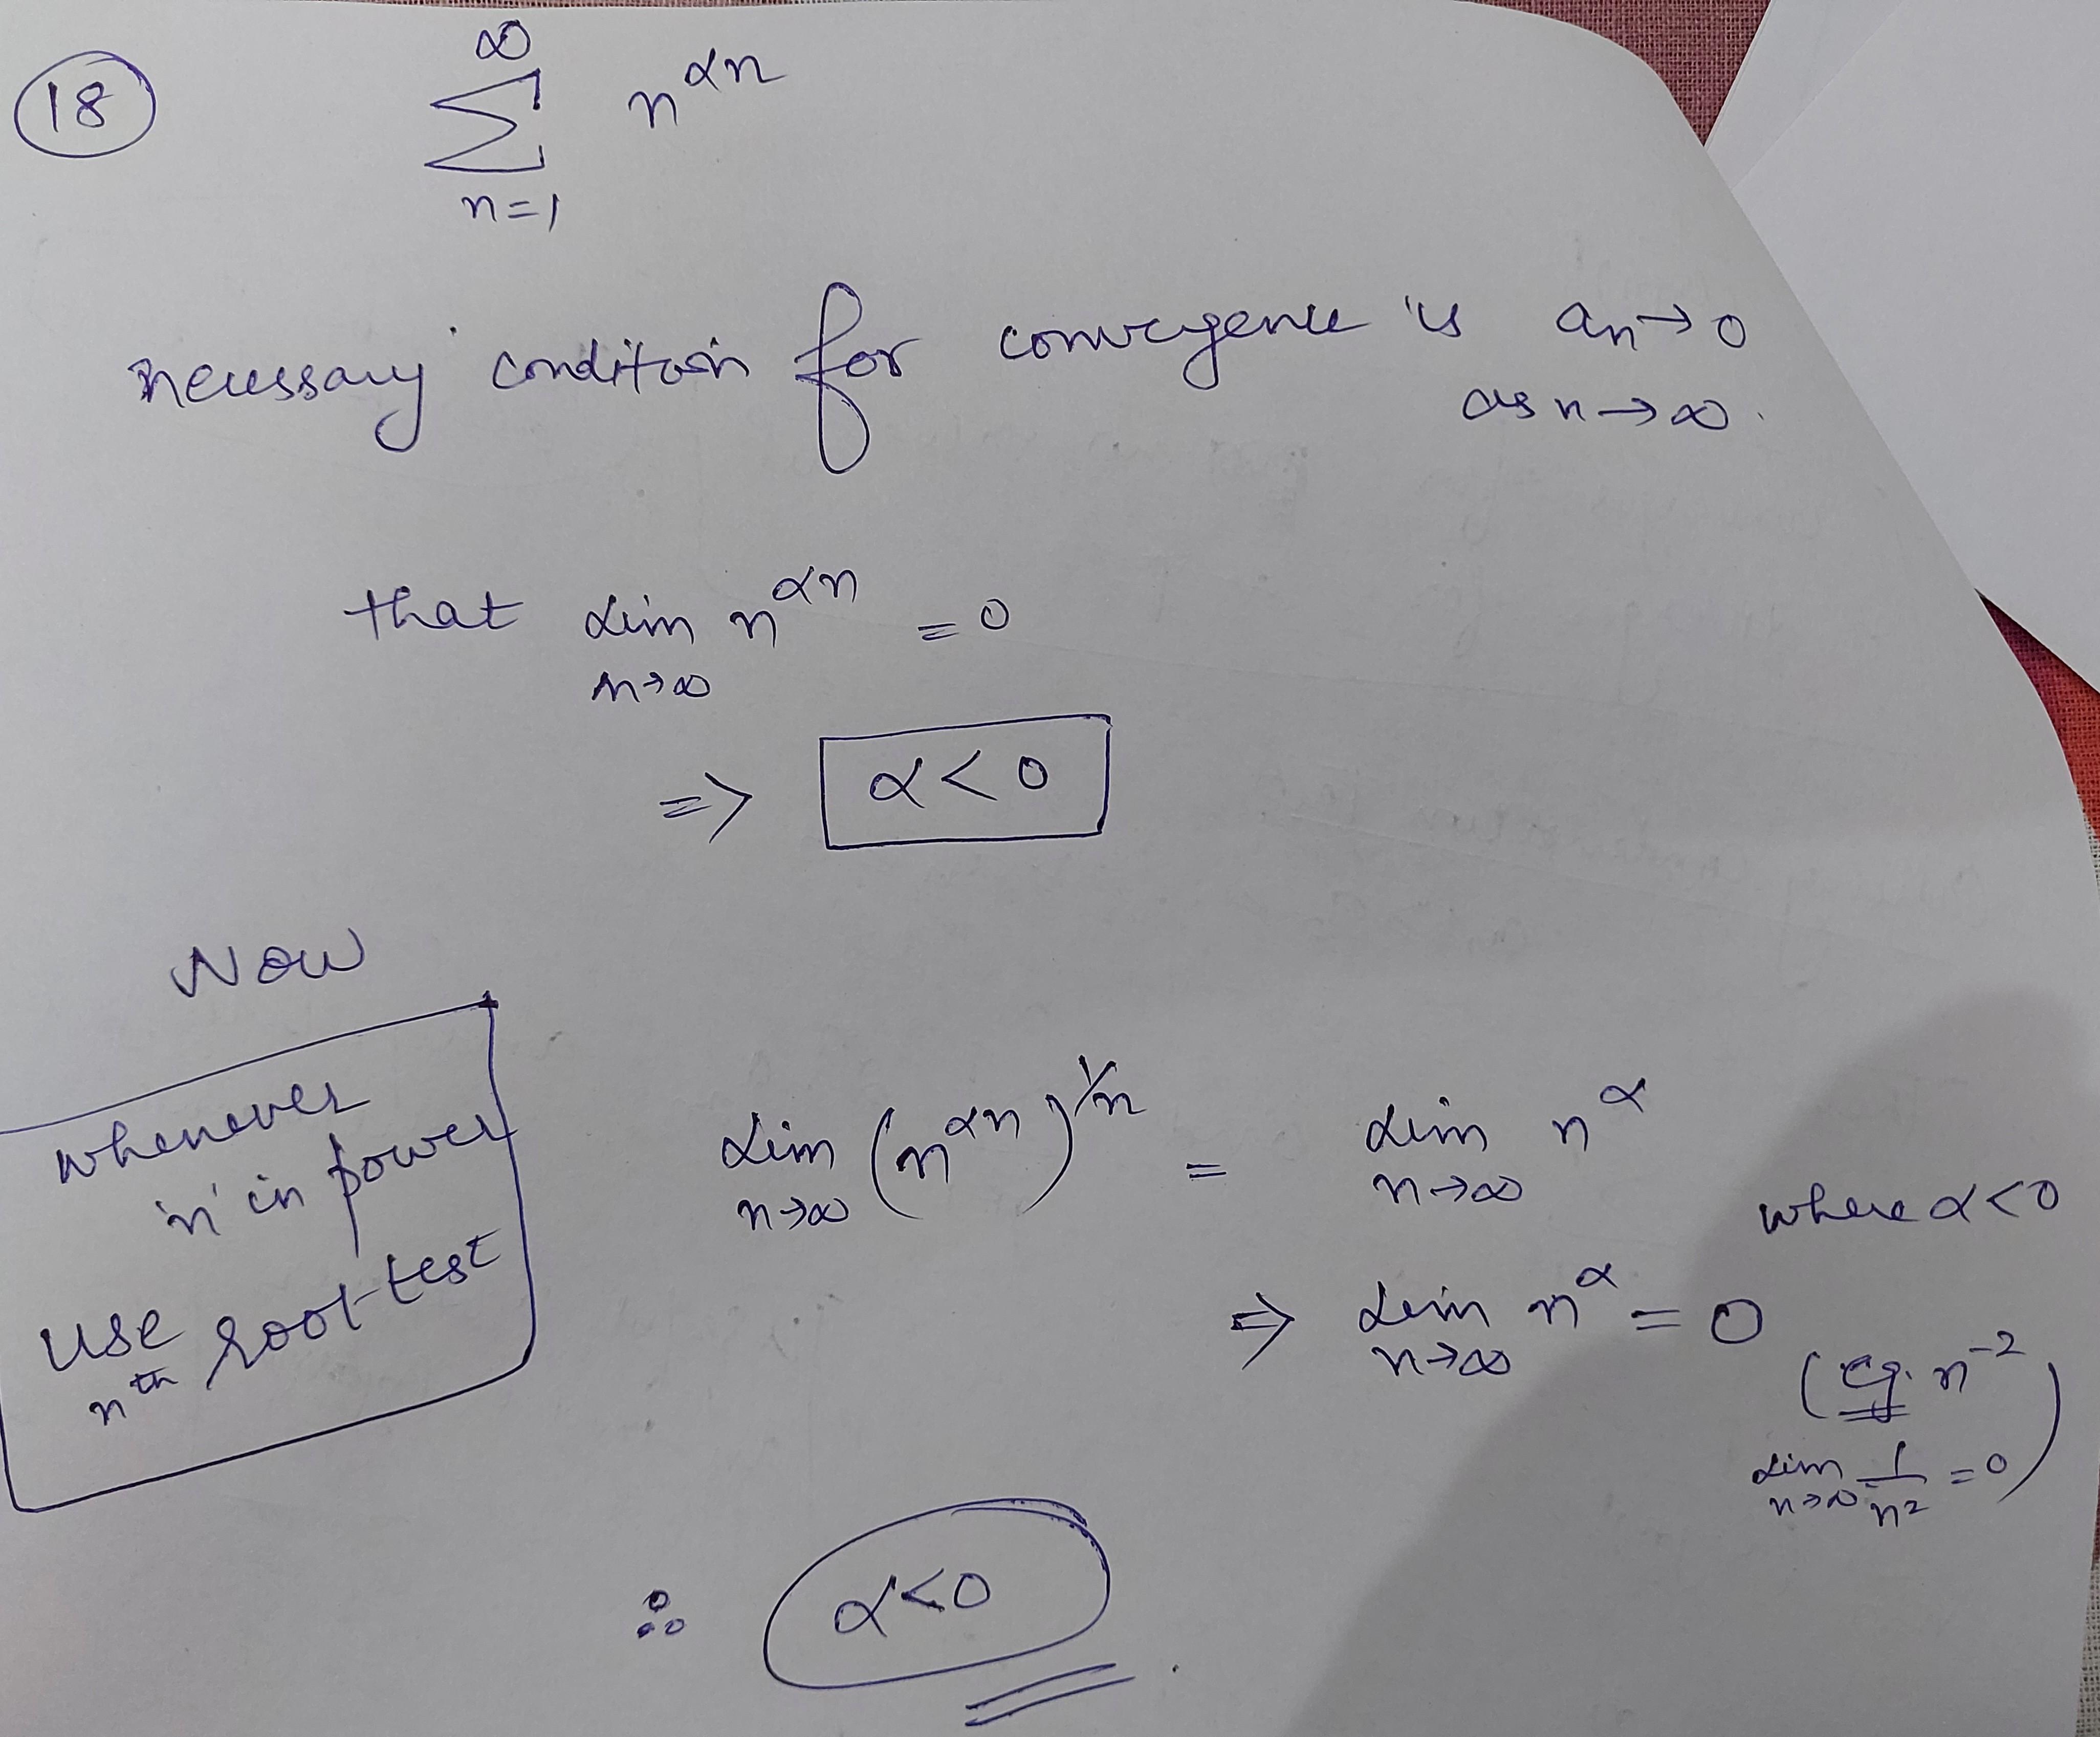 18
∞
∑ n^{αn}
n=1
necessary condition for convergence is a_n→0
as n→∞.
that Lim n^{αn} = 0
n→∞
⇒ α<0
Now
whenever
'n' in power
use
nth root test
Lim (n^{αn})^{1/n} = Lim n^α
n→∞ n→∞
where α<0
⇒ Lim n^α = 0
n→∞
(eg. n^{-2}
Lim 1/n² = 0)
n→∞
∴ α<0